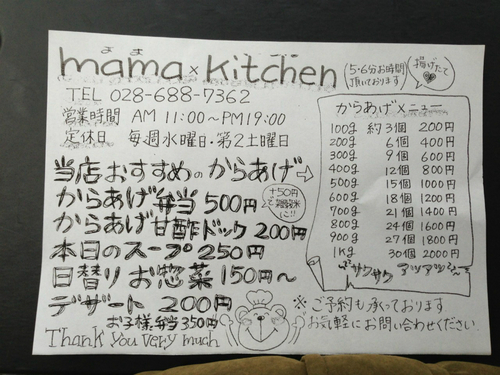 まま
mama×Kitchen
(5·6分お時間頂いております)
揚げたて
TEL 028-688-7362
営業時間 AM 11:00〜PM19:00
定休日 毎週水曜日・第2土曜日
当店おすすめのからあげ⇨
からあげ弁当 500円
+50円で雑穀米に!!
からあげ甘酢ドック 200円
本日のスープ 250円
日替り お惣菜 150円〜
デザート 200円
お子様弁当 350円
Thank you very much
からあげメニュー
100g 約3個 200円
200g 6個 400円
300g 9個 600円
400g 12個 800円
500g 15個 1000円
600g 18個 1200円
700g 21個 1400円
800g 24個 1600円
900g 27個 1800円
1kg 30個 2000円
サクサク アツアツ
※ご予約も承っております
お気軽にお問い合わせください